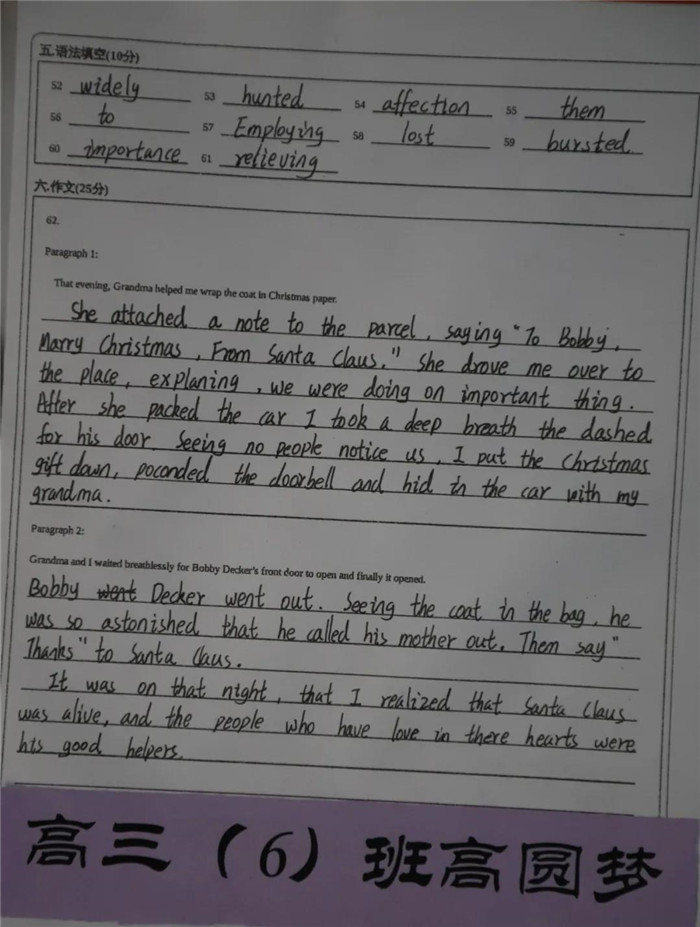 五.语法填空(10分)
52 widely 53 hunted 54 affection 55 them
56 to 57 Employing 58 lost 59 bursted
60 importance 61 relieving
六.作文(25分)
62.
Paragraph 1:
That evening, Grandma helped me wrap the coat in Christmas paper.
She attached a note to the parcel, saying "To Bobby,
Marry Christmas, From Santa Claus." She drove me over to
the place, explaning, we were doing on important thing.
After she packed the car I took a deep breath the dashed
for his door. Seeing no people notice us, I put the Christmas
gift down, poconded the doorbell and hid in the car with my
grandma.
Paragraph 2:
Grandma and I waited breathlessly for Bobby Decker's front door to open and finally it opened.
Bobby went Decker went out. Seeing the coat in the bag, he
was so astonished that he called his mother out. Them say "
Thanks" to Santa Claus.
It was on that night, that I realized that Santa Claus
was alive, and the people who have love in there hearts were
his good helpers.
高三（6）班高圆梦